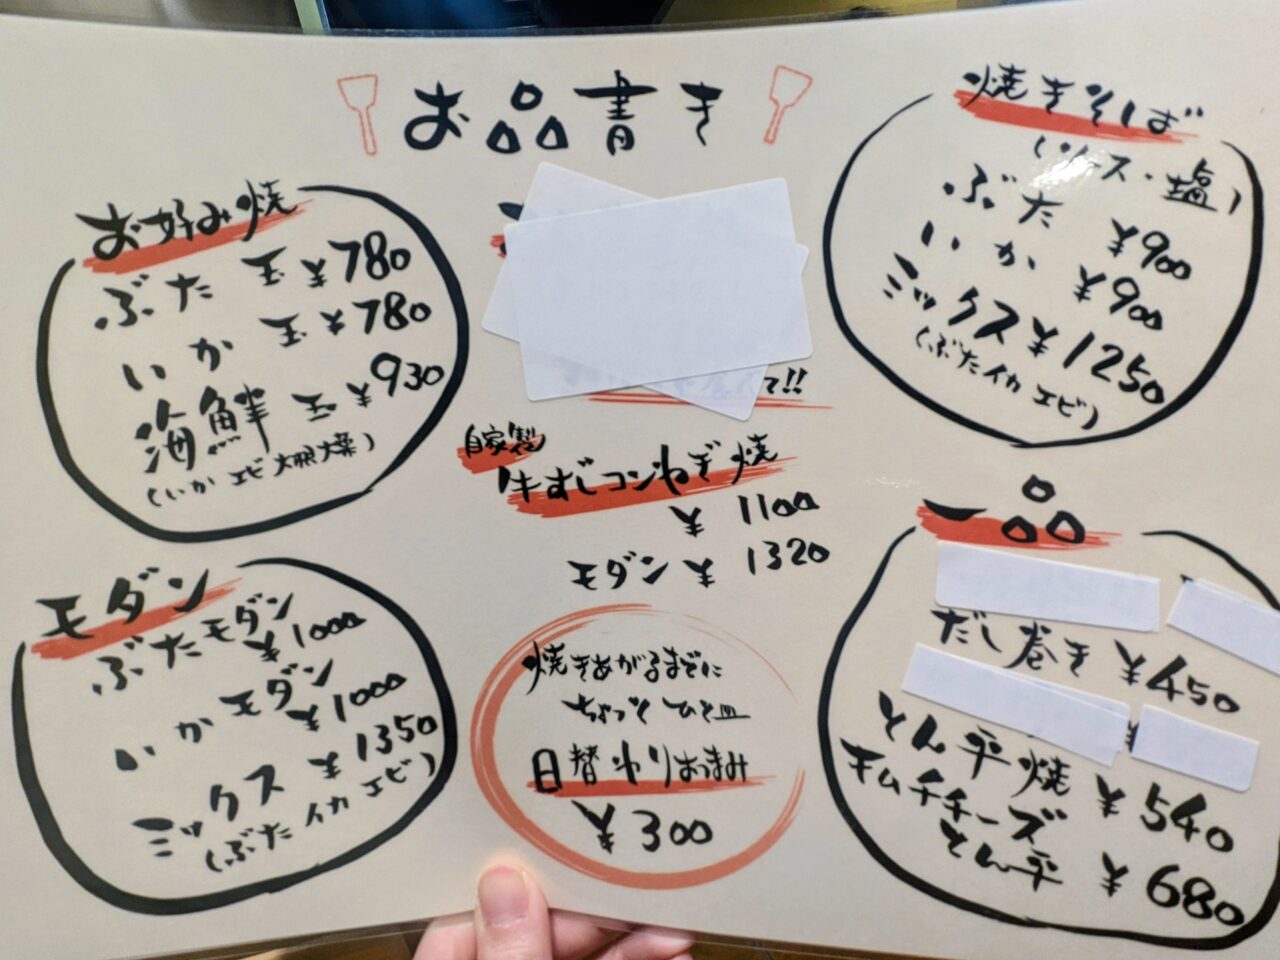 お品書き
お好み焼
ぶた玉 ¥780
いか玉 ¥780
海鮮玉 ¥930
(いか エビ 大根 大葉)
モダン
ぶたモダン
¥1000
いかモダン
¥1000
ミックス ¥1350
(ぶた イカ エビ)
て!!
自家製
牛すじコンねぎ焼
¥1100
モダン ¥1320
焼きあがるまでに
ちょっとひと皿
日替わりおつまみ
¥300
焼きそば
(ソース・塩)
ぶた ¥900
いか ¥900
ミックス ¥1250
(ぶた イカ エビ)
一品
だし巻き ¥450
とん平焼 ¥540
キムチチーズ
とん平 ¥680